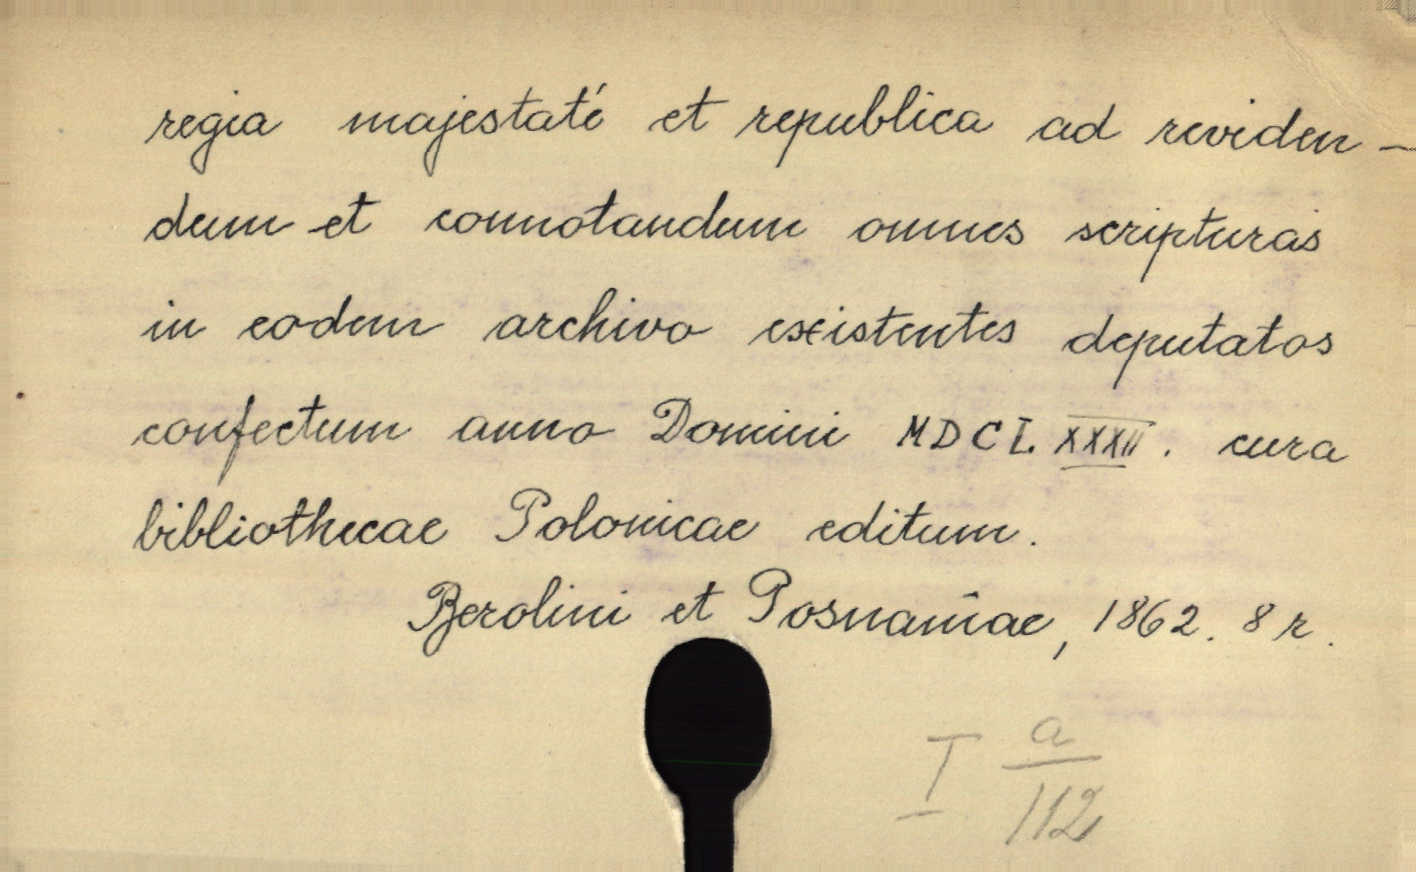 regia majestaté et republica ad reviden-
dum et connotandum omnes scripturas
in eodem archivo existentes deputatos
confectum anno Domini MDCL XXXII. cura
bibliothecae Polonicae editum.
Berolini et Posnaniae, 1862. 8 r.
I a/112